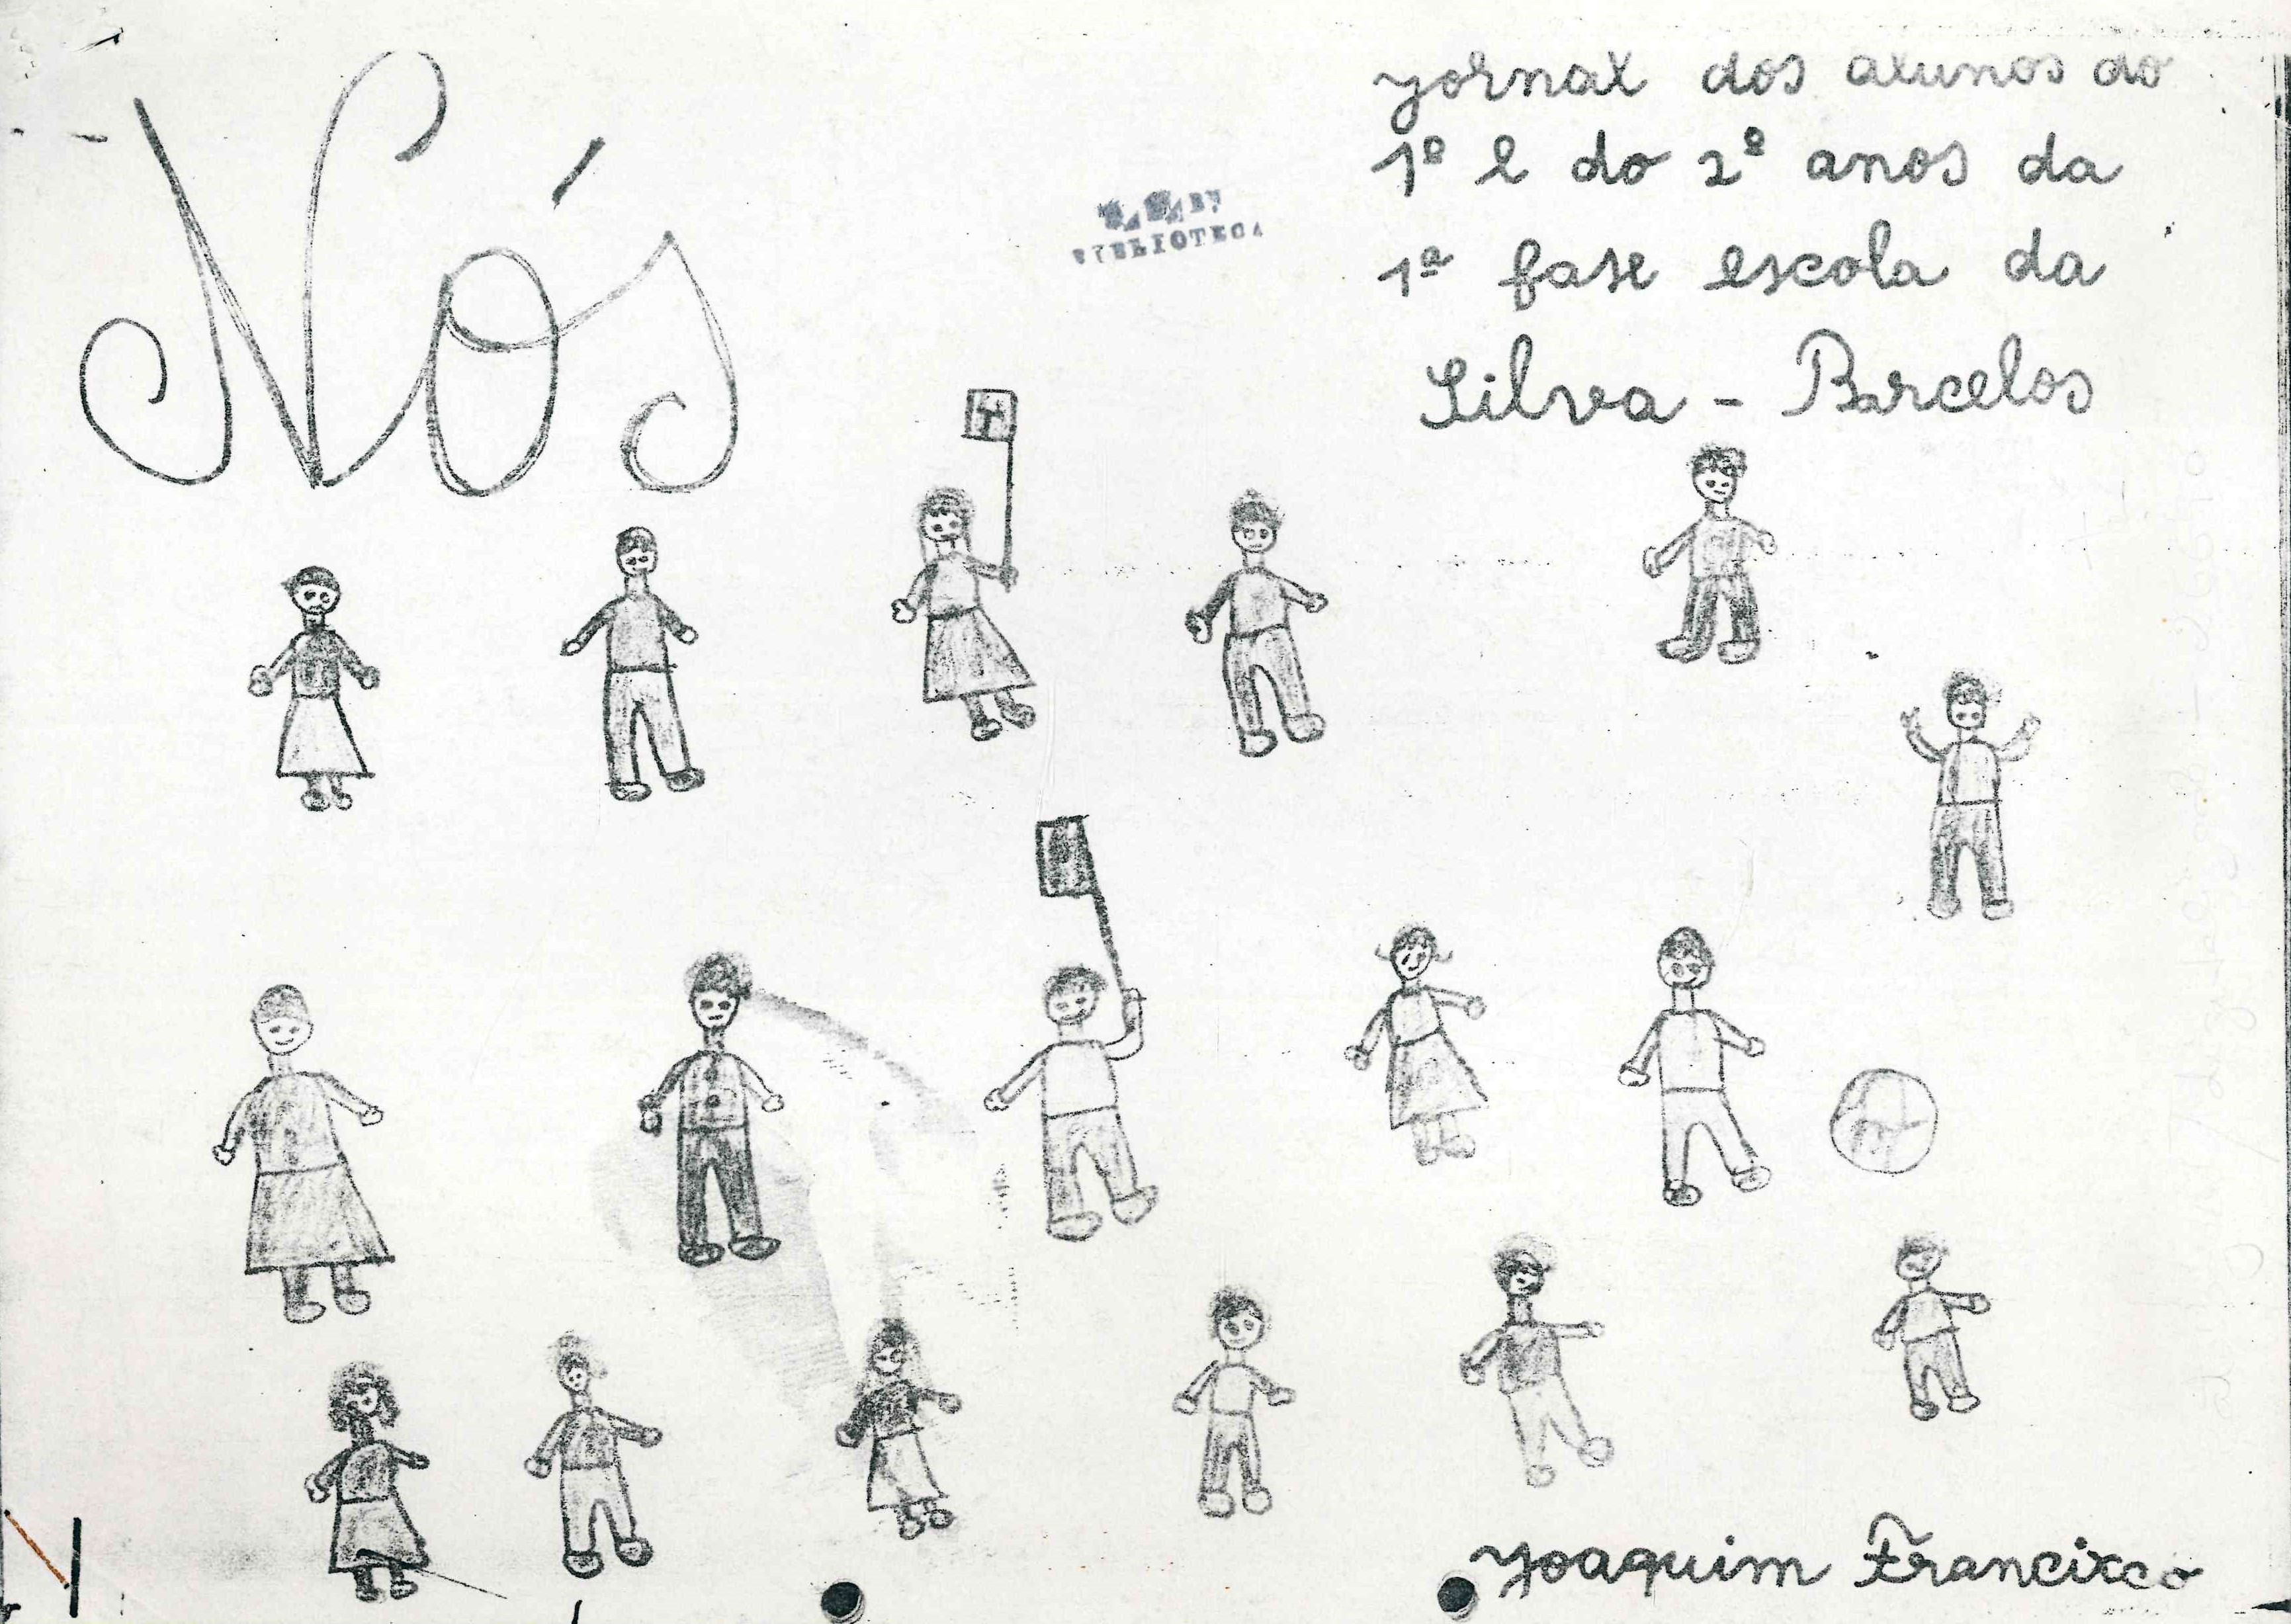 Nós
jornal dos alunos do
1º e do 2º anos da
1ª fase escola da
Silva - Barcelos
BIBLIOTECA
Joaquim Francisco